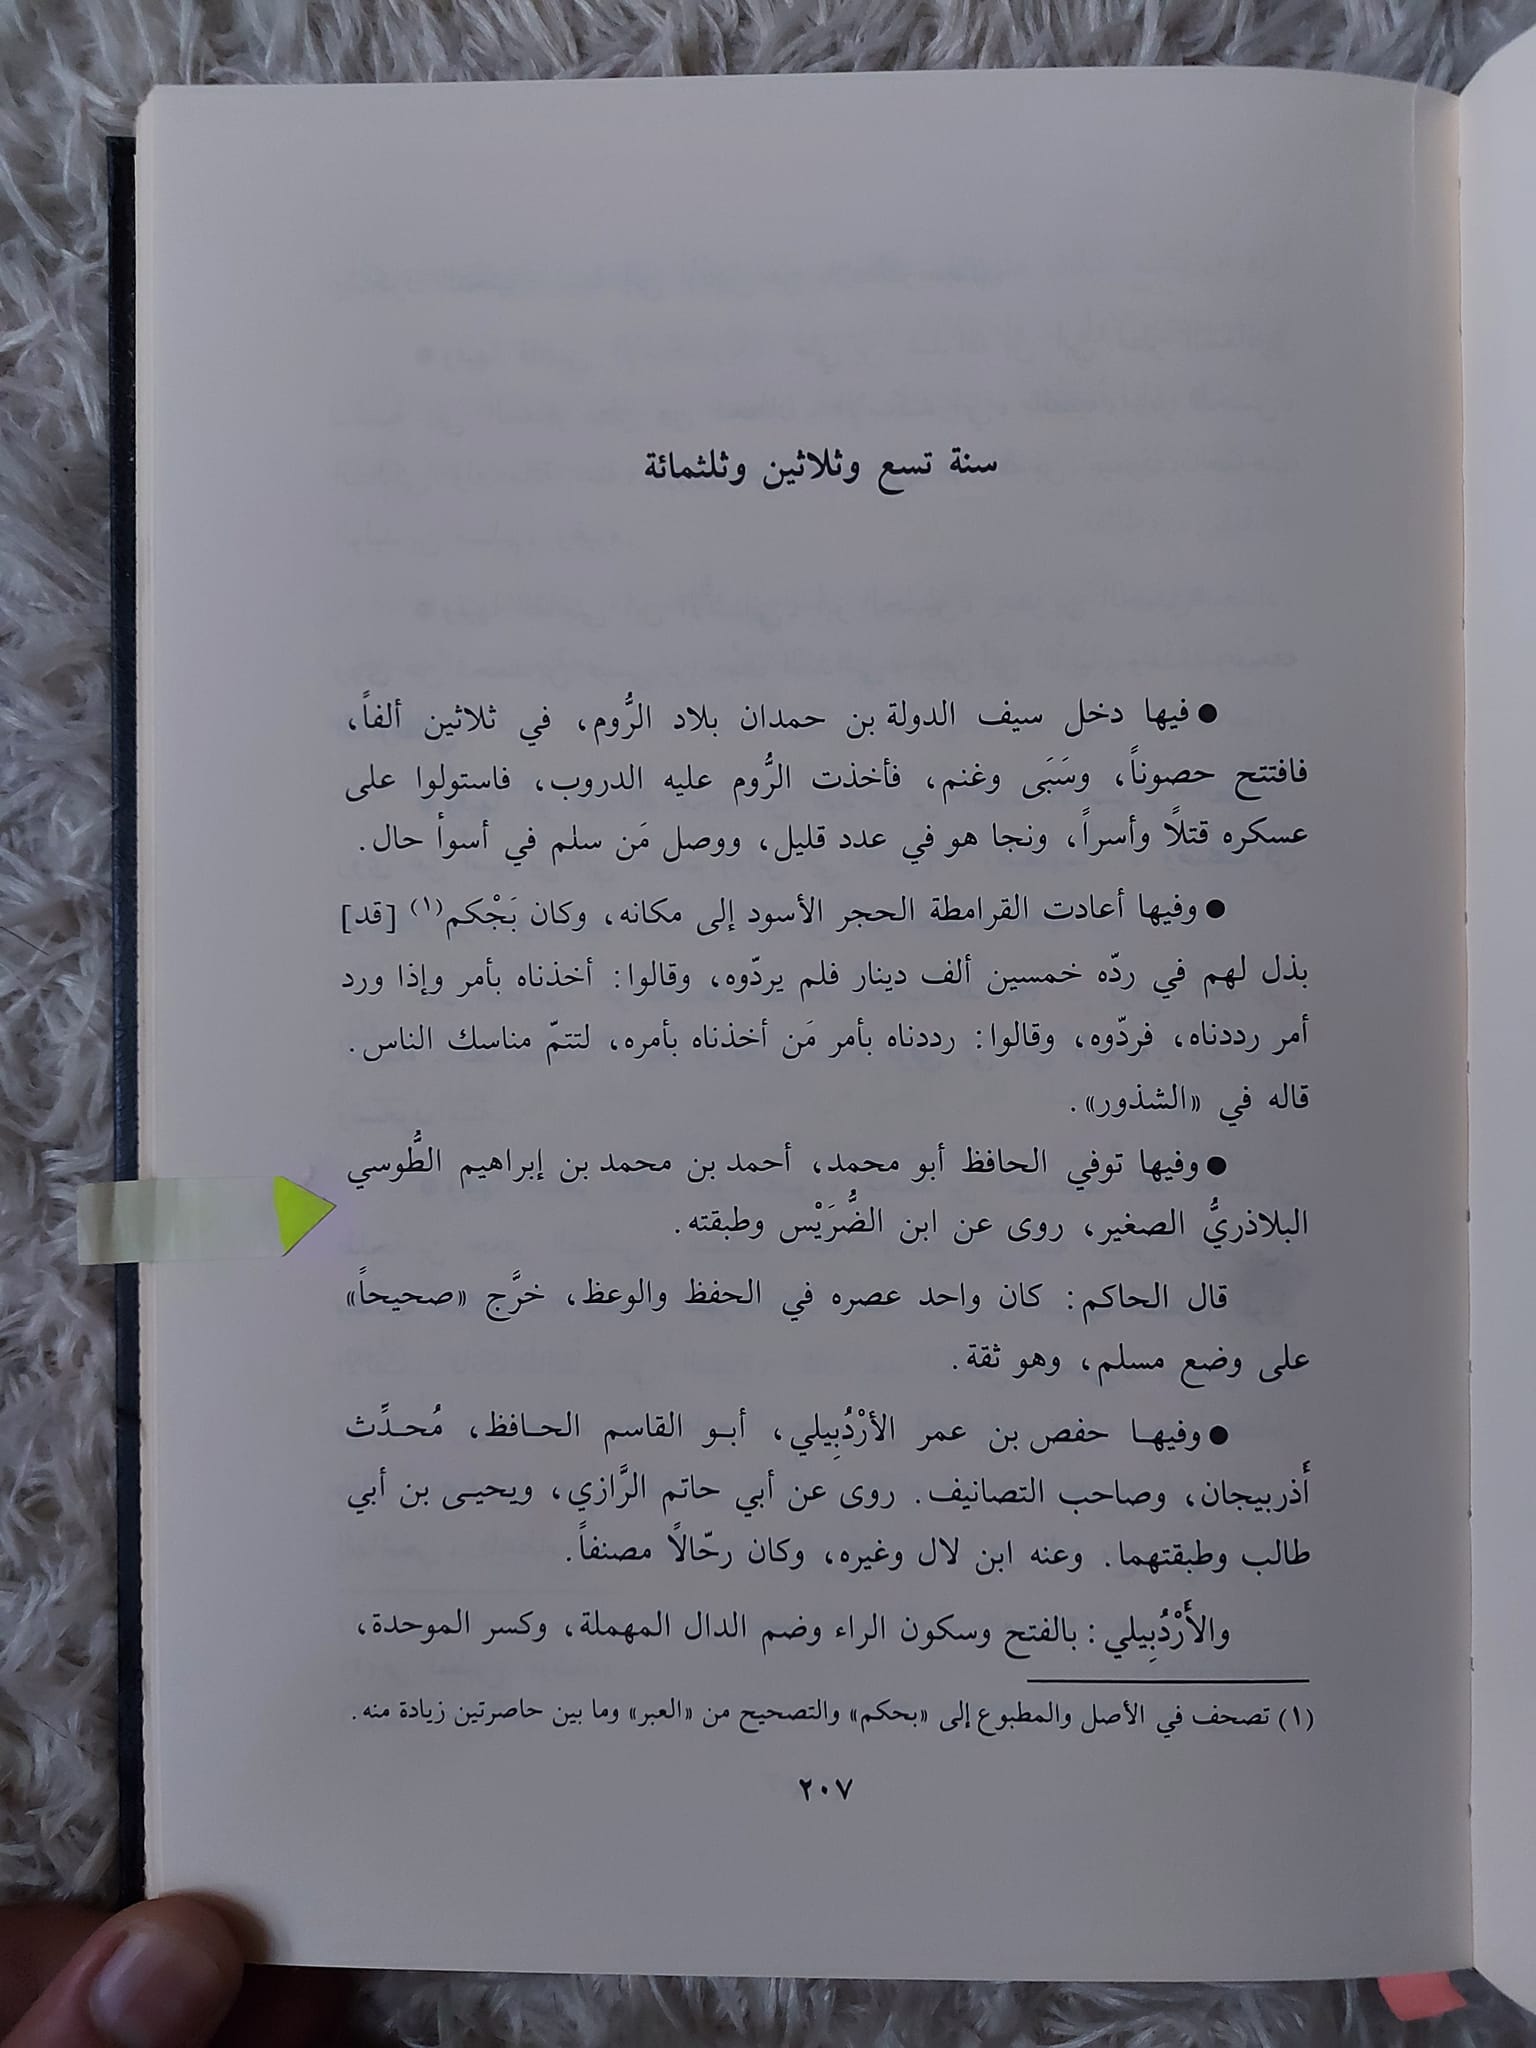 سنة تسع وثلاثين وثلثمائة
● فيها دخل سيف الدولة بن حمدان بلاد الرُّوم، في ثلاثين ألفاً،
فافتتح حصوناً، وسَبَى وغنم، فأخذت الرُّوم عليه الدروب، فاستولوا على
عسكره قتلًا وأسراً، ونجا هو في عدد قليل، ووصل مَن سلم في أسوأ حال.
● وفيها أعادت القرامطة الحجر الأسود إلى مكانه، وكان بَجْكم(١) [قد]
بذل لهم في ردّه خمسين ألف دينار فلم يردّوه، وقالوا: أخذناه بأمر وإذا ورد
أمر رددناه، فردّوه، وقالوا: رددناه بأمر مَن أخذناه بأمره، لتتمّ مناسك الناس.
قاله في «الشذور».
● وفيها توفي الحافظ أبو محمد، أحمد بن محمد بن إبراهيم الطُّوسي
البلاذريُّ الصغير، روى عن ابن الضُّرَيْس وطبقته.
قال الحاكم: كان واحد عصره في الحفظ والوعظ، خرَّج «صحيحاً»
على وضع مسلم، وهو ثقة.
● وفيها حفص بن عمر الأرْدُبِيلي، أبو القاسم الحافظ، مُحدِّث
أَذربيجان، وصاحب التصانيف. روى عن أبي حاتم الرَّازي، ويحيى بن أبي
طالب وطبقتهما. وعنه ابن لال وغيره، وكان رحّالًا مصنفاً.
والأَرْدُبِيلي: بالفتح وسكون الراء وضم الدال المهملة، وكسر الموحدة،
(١) تصحف في الأصل والمطبوع إلى «بحكم» والتصحيح من «العبر» وما بين حاصرتين زيادة منه.
٢٠٧